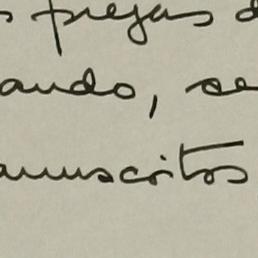 s pregas d
ando, se
anuscritos